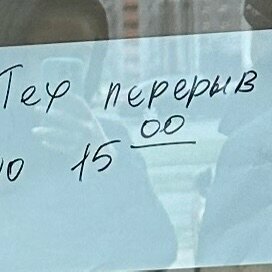 Тех перерыв
до 15 00